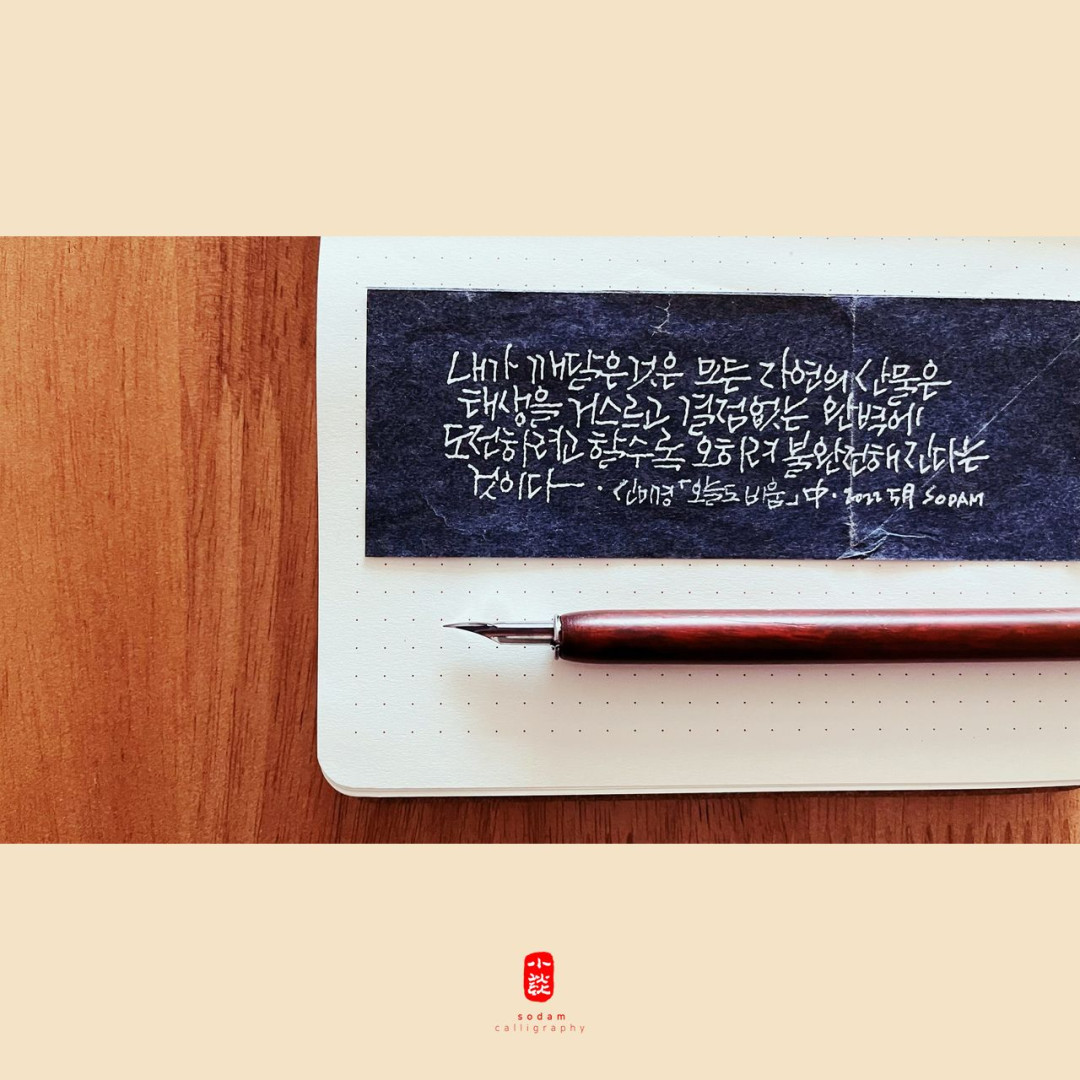 내가 깨달은 것은 모든 자연의 산물은
태생을 거스르고 결점없는 완벽에
도전하려고 할수록 오히려 불완전해진다는
것이다 · 신미경 「오늘도 비움」 中 · 2022 5月 SODAM
小談
sodam
calligraphy